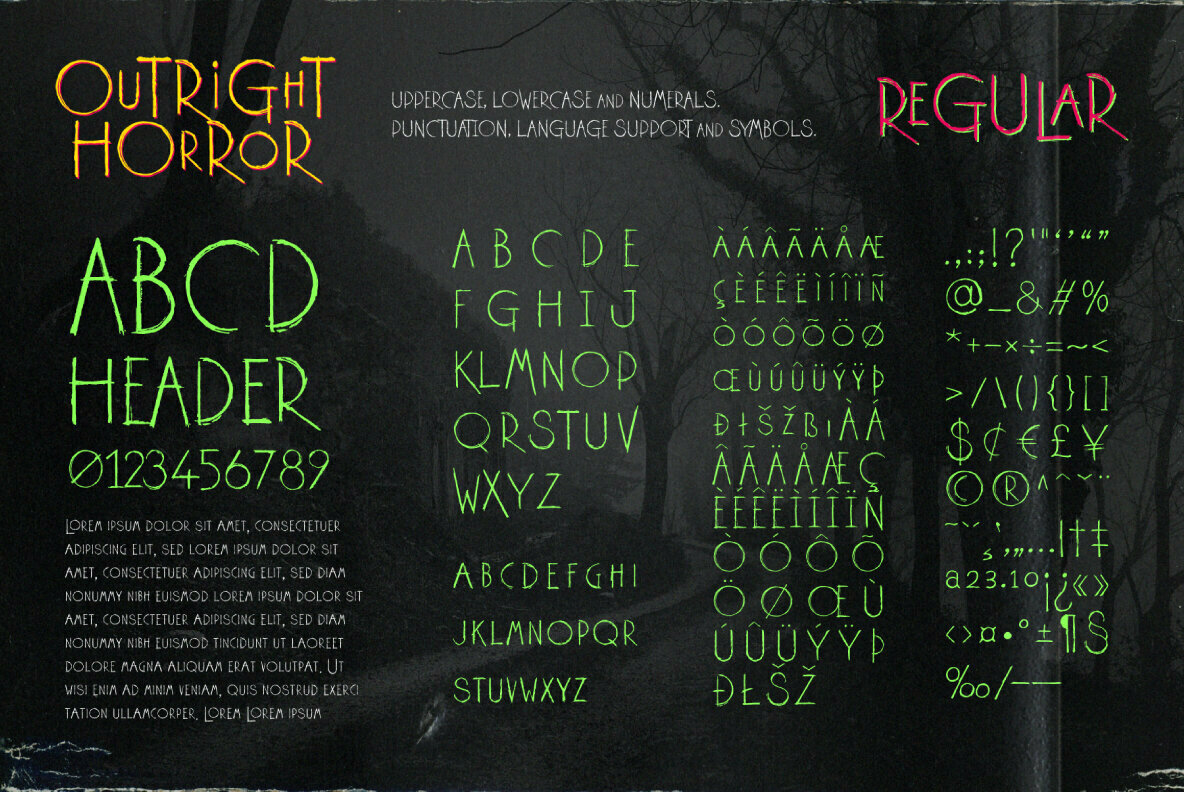 OuTRiGHT
HORROR
UPPERCASE, LOWERCASE AND NUMERALS.
PUNCTUATION, LANGUAGE SUPPORT AND SYMBOLS.
REGULAR
ABCD
HEADER
0123456789
LOREM IPSUM DOLOR SIT AMET, CONSECTETUER
ADIPISCING ELIT, SED LOREM IPSUM DOLOR SIT
AMET, CONSECTETUER ADIPISCING ELIT, SED DIAM
NONUMMY NIBH EUISMOD LOREM IPSUM DOLOR SIT
AMET, CONSECTETUER ADIPISCING ELIT, SED DIAM
NONUMMY NIBH EUISMOD TINCIDUNT UT LAOREET
DOLORE MAGNA ALIQUAM ERAT VOLUTPAT. UT
WISI ENIM AD MINIM VENIAM, QUIS NOSTRUD EXERCI
TATION ULLAMCORPER. LOREM LOREM IPSUM
A B C D E
F G H I J
K L M N O P
Q R S T U V
W X Y Z
A B C D E F G H I
J K L M N O P Q R
S T U V W X Y Z
À Á Â Ã Ä Å Æ
Ç È É Ê Ë Ì Í Î Ï Ñ
Ò Ó Ô Õ Ö Ø
Œ Ù Ú Û Ü Ý Ÿ Þ
Đ ł Š Ž ß ı À Á
Â Ã Ä Å Æ Ç
È É Ê Ë Ì Í Î Ï Ñ
Ò Ó Ô Õ
Ö Ø Œ Ù
Ú Û Ü Ý Ÿ Þ
Đ Ł Š Ž
. , : ; ! ? ' " ‘ ’ “ ”
@ _ & # %
* + − × ÷ = ~ <
> / \ ( ) { } [ ]
$ ¢ € £ ¥
© ® ^ ˆ ˇ ¨
~ ˘ ˙ ` ¸ ‚ „ … | † ‡
a 2 3 . 1 o ¡ ¿ « »
‹ › ¤ • ° ± ¶ §
‰ / – —